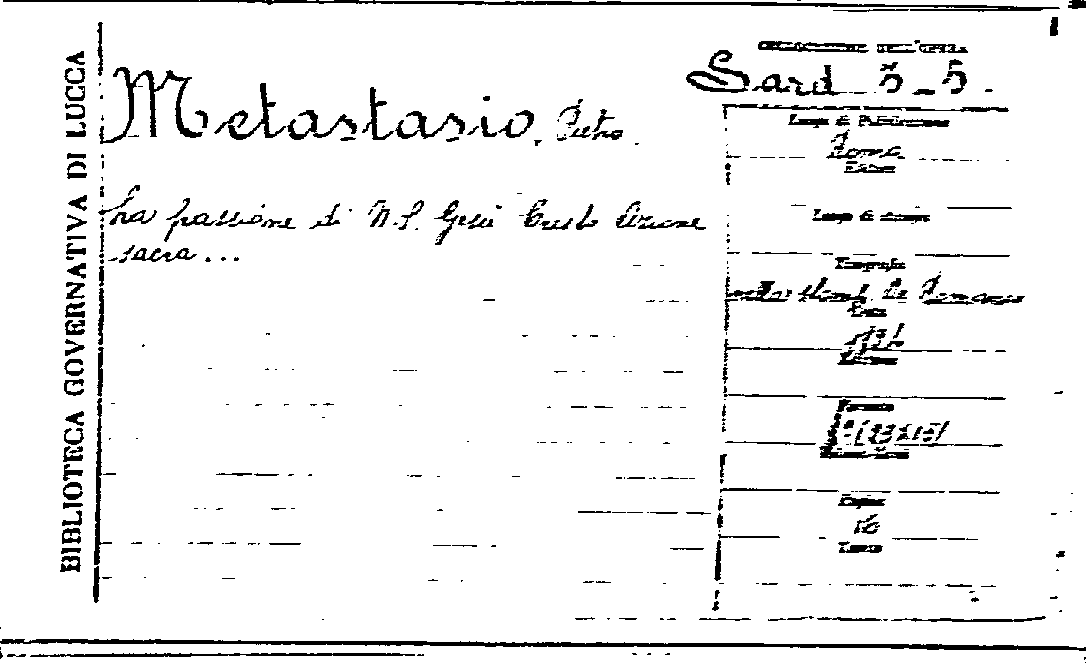 BIBLIOTECA GOVERNATIVA DI LUCCA
Metastasio, Pietro.
La passione di N.S. Gesù Cristo Azione
sacra...
COLLOCAZIONE DELL'OPERA
Sard 5-5.
Luogo di Pubblicazione
Roma
Editore
Luogo di stampa
Tipografia
De Romanis
Data
Formato
8° (23x15)
Pagine
16
Tomo